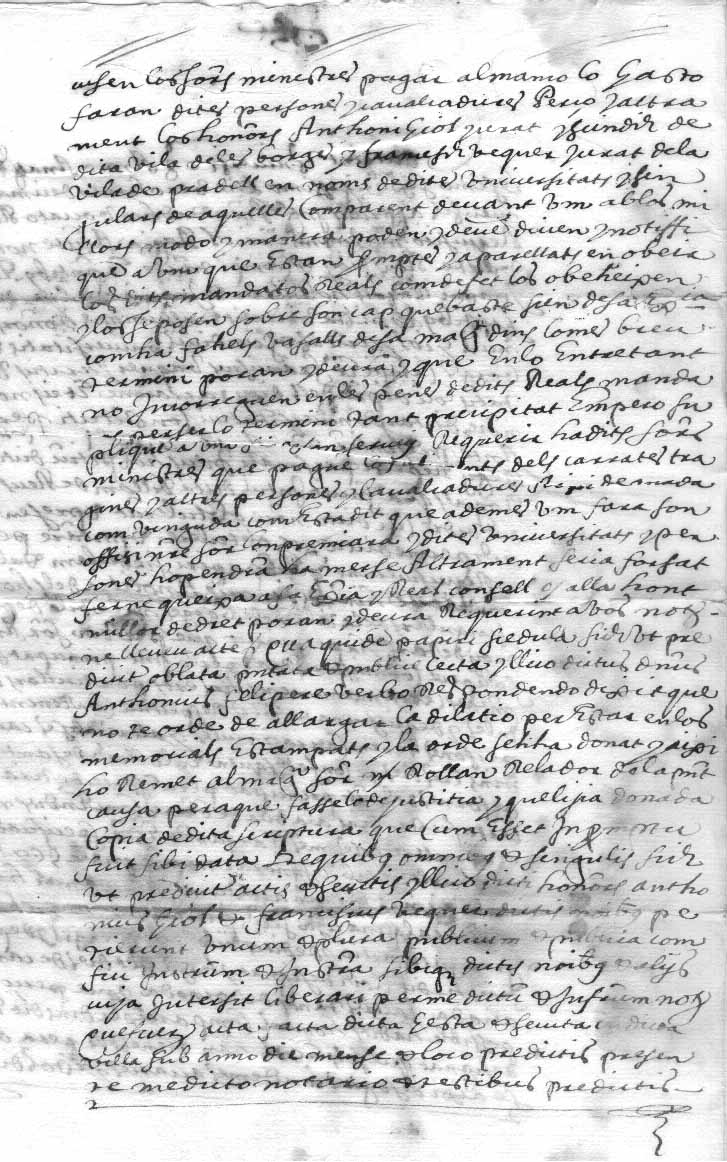 los sors ministres pagar al manco lo gasto
faran dites persones y cavalcadures Perço y altra
ment los honors Anthoni Giol jurat y sindich de
dita vila de les borges y francesch vaquer jurat de la
vila de pradell en noms de dites universitats y sin
gulars de aquelles Comparent devant vm ab los mi
llors modo y manera poden y deuen diuen y notiffi
quen a vm que Estan promptes y aparellats en obeir
los dits mandatos Reals com de fet los obeheixen
y los se posen sobre son cap que baste sien de sa Exa
com ha fahels vasalls de sa magt dins lo mes breu
termini poran y deuran y que En lo Entretant
no Incorreguen en les penes de dits Reals manda
per ser lo termini tant precipitat Empero su
plique a vm Requerir ha dits sors
ministres que pague dels carrates tra
gines y altres persones y Cavalcadures de anada
com vinguda com Esta dit que ademes vm fara son
offisi nre sor lon premiara y dites universitats y per
sones ho pendran ha merse Altrament seria forsat
ferne quexa a sa Exia y Real consell y alla hont
millor de dret poran y deura Requerint a vos nott
ne lleveu acte Qua quidem papiri scedula sich ut pre
dicit oblata pntata & publice lecta yllico dictus dnus
Anthonius felip ere verbo Respondendo dixit que
no te orde de allargar la dilatio per Estar en los
memorials Estampats y la orde se li ha donat y aixi
ho Remet al magch sor Rollan Relador de la pnt
causa pera que fasse lo de justitia y que li sia donada
Copia de dita scriptura que Cum Esset In promptu
fuit sibi data De quibus omnibus & singulis sich
ut predicit actis & secutis yllico dicti honors antho
nius Giol & franciscus vaquer dictis noibus pe
tierunt unum & plura publicum & publica com
fici Instrum & Instra sibique dictis noibus & alijs
cuja Intersit liberari per me dictu & Infrum nott
que fuer acta dicta gesta & secuta in dicta
villa sub anno die mense & loco predictis presen
te me dicto notario & testibus predictis